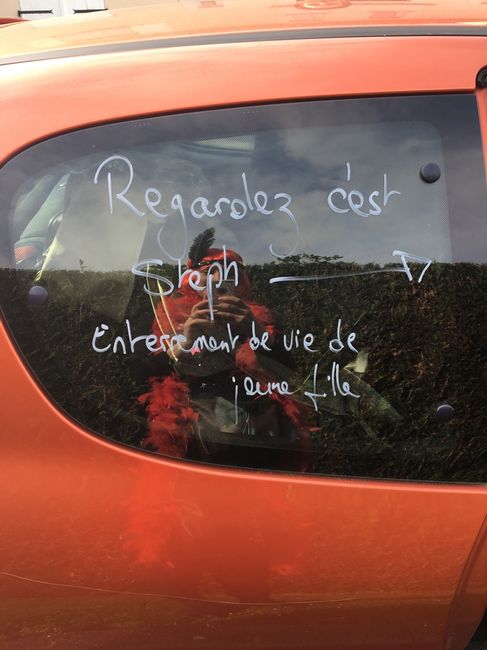 Regardez c'est
Steph →
Enterrement de vie de
jeune fille